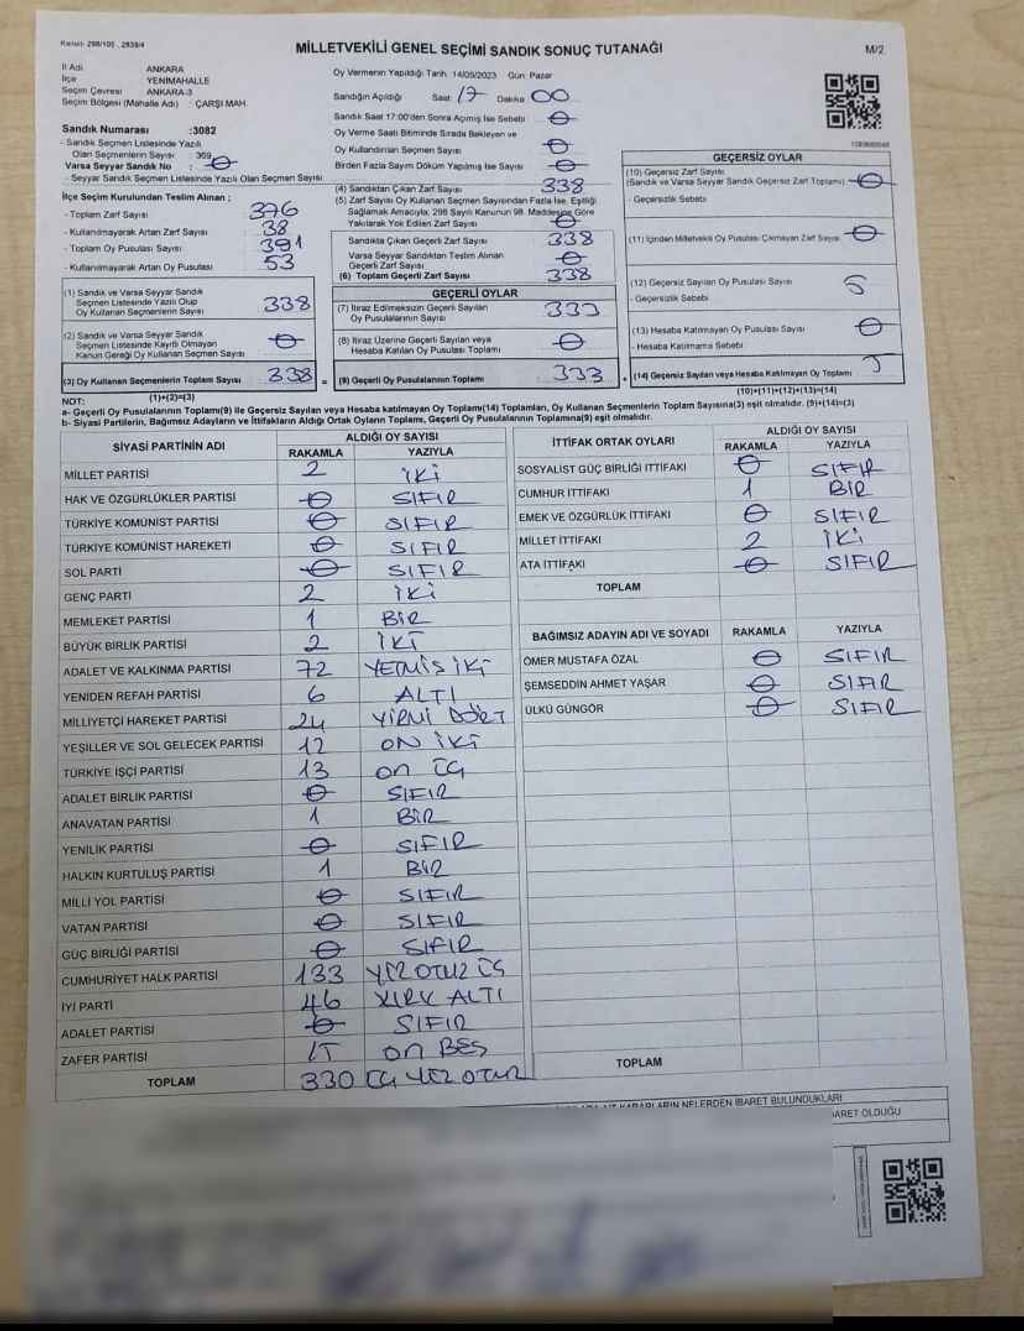 Kanun: 298/105 , 2839/4
MİLLETVEKİLİ GENEL SEÇİMİ SANDIK SONUÇ TUTANAĞI
M/2
İl Adı ANKARA
İlçe YENİMAHALLE
Seçim Çevresi ANKARA-3
Seçim Bölgesi (Mahalle Adı) : ÇARŞI MAH.
Sandık Numarası :3082
- Sandık Seçmen Listesinde Yazılı
Olan Seçmenlerin Sayısı : 369
Varsa Seyyar Sandık No : 0
- Seyyar Sandık Seçmen Listesinde Yazılı Olan Seçmen Sayısı
İlçe Seçim Kurulundan Teslim Alınan :
- Toplam Zarf Sayısı 376
- Kullanılmayarak Artan Zarf Sayısı 38
- Toplam Oy Pusulası Sayısı 391
- Kullanılmayarak Artan Oy Pusulası 53
(1) Sandık ve Varsa Seyyar Sandık
Seçmen Listesinde Yazılı Olup
Oy Kullanan Seçmenlerin Sayısı 338
(2) Sandık ve Varsa Seyyar Sandık
Seçmen Listesinde Kayıtlı Olmayan
Kanun Gereği Oy Kullanan Seçmen Sayısı 0
(3) Oy Kullanan Seçmenlerin Toplam Sayısı 338 =
(1)+(2)=(3)
Oy Vermenin Yapıldığı Tarih: 14/05/2023 Gün: Pazar
Sandığın Açıldığı Saat: 17 Dakika 00
Sandık Saat 17:00'den Sonra Açılmış İse Sebebi 0
Oy Verme Saati Bitiminde Sırada Bekleyen ve
Oy Kullandırılan Seçmen Sayısı 0
Birden Fazla Sayım Döküm Yapılmış İse Sayısı 0
(4) Sandıktan Çıkan Zarf Sayısı 338
(5) Zarf Sayısı Oy Kullanan Seçmen Sayısından Fazla İse, Eşitliği
Sağlamak Amacıyla; 298 Sayılı Kanunun 98. Maddesine Göre
Yakılarak Yok Edilen Zarf Sayısı 0
Sandıkta Çıkan Geçerli Zarf Sayısı 338
Varsa Seyyar Sandıktan Teslim Alınan
Geçerli Zarf Sayısı 0
(6) Toplam Geçerli Zarf Sayısı 338
GEÇERLİ OYLAR
(7) İtiraz Edilmeksizin Geçerli Sayılan
Oy Pusulalarının Sayısı 333
(8) İtiraz Üzerine Geçerli Sayılan veya
Hesaba Katılan Oy Pusulası Toplamı 0
(9) Geçerli Oy Pusulalarının Toplamı 333 +
GEÇERSİZ OYLAR
(10) Geçersiz Zarf Sayısı
(Sandık ve Varsa Seyyar Sandık Geçersiz Zarf Toplamı) 0
- Geçersizlik Sebebi
(11) İçinden Milletvekili Oy Pusulası Çıkmayan Zarf Sayısı 0
(12) Geçersiz Sayılan Oy Pusulası Sayısı 5
- Geçersizlik Sebebi
(13) Hesaba Katılmayan Oy Pusulası Sayısı 0
- Hesaba Katılmama Sebebi
(14) Geçersiz Sayılan veya Hesaba Katılmayan Oy Toplamı 5
(10)+(11)+(12)+(13)=(14)
NOT:
a- Geçerli Oy Pusulalarının Toplamı(9) ile Geçersiz Sayılan veya Hesaba katılmayan Oy Toplamı(14) Toplamları, Oy Kullanan Seçmenlerin Toplam Sayısına(3) eşit olmalıdır. (9)+(14)=(3)
b- Siyasi Partilerin, Bağımsız Adayların ve İttifakların Aldığı Ortak Oyların Toplamı, Geçerli Oy Pusulalarının Toplamına(9) eşit olmalıdır.
SİYASİ PARTİNİN ADI ALDIĞI OY SAYISI
RAKAMLA YAZIYLA
MİLLET PARTİSİ 2 İKİ
HAK VE ÖZGÜRLÜKLER PARTİSİ 0 SIFIR
TÜRKİYE KOMÜNİST PARTİSİ 0 SIFIR
TÜRKİYE KOMÜNİST HAREKETİ 0 SIFIR
SOL PARTİ 0 SIFIR
GENÇ PARTİ 2 İKİ
MEMLEKET PARTİSİ 1 BİR
BÜYÜK BİRLİK PARTİSİ 2 İKİ
ADALET VE KALKINMA PARTİSİ 72 YETMİŞ İKİ
YENİDEN REFAH PARTİSİ 6 ALTI
MİLLİYETÇİ HAREKET PARTİSİ 24 YİRMİ DÖRT
YEŞİLLER VE SOL GELECEK PARTİSİ 12 ON İKİ
TÜRKİYE İŞÇİ PARTİSİ 13 ON ÜÇ
ADALET BİRLİK PARTİSİ 0 SIFIR
ANAVATAN PARTİSİ 1 BİR
YENİLİK PARTİSİ 0 SIFIR
HALKIN KURTULUŞ PARTİSİ 1 BİR
MİLLİ YOL PARTİSİ 0 SIFIR
VATAN PARTİSİ 0 SIFIR
GÜÇ BİRLİĞİ PARTİSİ 0 SIFIR
CUMHURİYET HALK PARTİSİ 133 YÜZ OTUZ ÜÇ
İYİ PARTİ 46 KIRK ALTI
ADALET PARTİSİ 0 SIFIR
ZAFER PARTİSİ 15 ON BEŞ
TOPLAM 330 ÜÇ YÜZ OTUZ
İTTİFAK ORTAK OYLARI ALDIĞI OY SAYISI
RAKAMLA YAZIYLA
SOSYALİST GÜÇ BİRLİĞİ İTTİFAKI 0 SIFIR
CUMHUR İTTİFAKI 1 BİR
EMEK VE ÖZGÜRLÜK İTTİFAKI 0 SIFIR
MİLLET İTTİFAKI 2 İKİ
ATA İTTİFAKI 0 SIFIR
TOPLAM
BAĞIMSIZ ADAYIN ADI VE SOYADI RAKAMLA YAZIYLA
ÖMER MUSTAFA ÖZAL 0 SIFIR
ŞEMSEDDİN AHMET YAŞAR 0 SIFIR
ÜLKÜ GÜNGÖR 0 SIFIR
TOPLAM
KARARLARIN NELERDEN İBARET BULUNDUKLARI
İBARET OLDUĞU